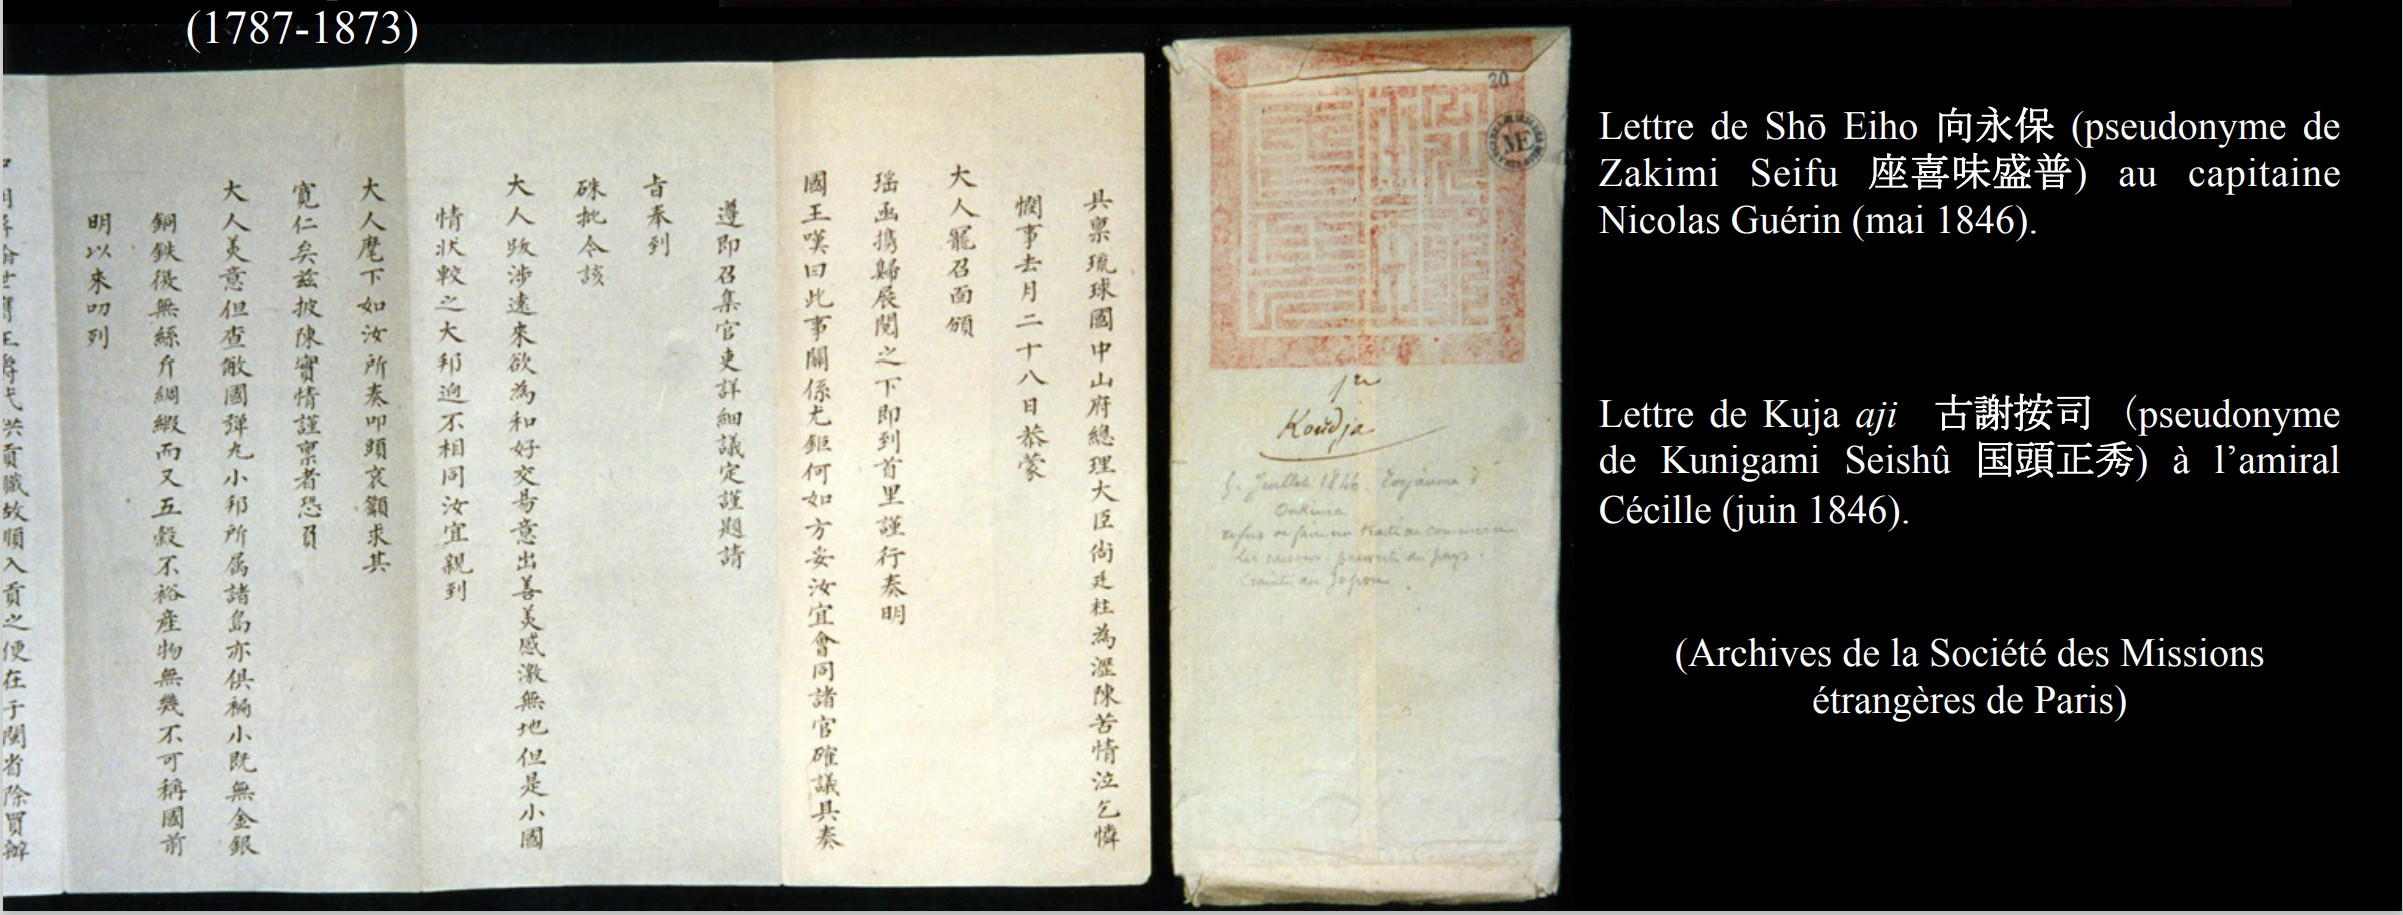 (1787-1873)
具稟琉球國中山府總理大臣尙廷柱為瀝陳苦情泣乞憐
憫事去月二十八日恭蒙
大人寵召面頒
瑶函携歸展閱之下即到首里謹行奏明
國王嘆曰此事關係尤鉅何如方妥汝宜會同諸官確議具奏
遵即召集官吏詳細議定謹題請
旨奉到
硃批令該
大人跋涉遠來欲為和好交易意出善美感激無地但是小國
情狀較之大邦迥不相同汝宜親到
大人麾下如汝所奏叩頭哀籲求其
寬仁矣茲披陳實情謹稟者恐負
大人美意但查敝國彈丸小邦所属諸島亦俱褊小既無金銀
銅鉄復無絲斤綢緞而又五穀不裕產物無幾不可稱國前
明以來叨列
貢職故順入貢之便在于閩省除買辦
20
MF
Koudja
5 Juillet 1846. Royaume d'
Oukinia
refus de faire un traité de commerce
Les raisons: pauvreté du pays.
Crainte du Japon.
Lettre de Shō Eiho 向永保 (pseudonyme de
Zakimi Seifu 座喜味盛普) au capitaine
Nicolas Guérin (mai 1846).
Lettre de Kuja aji 古謝按司 (pseudonyme
de Kunigami Seishû 国頭正秀) à l’amiral
Cécille (juin 1846).
(Archives de la Société des Missions
étrangères de Paris)